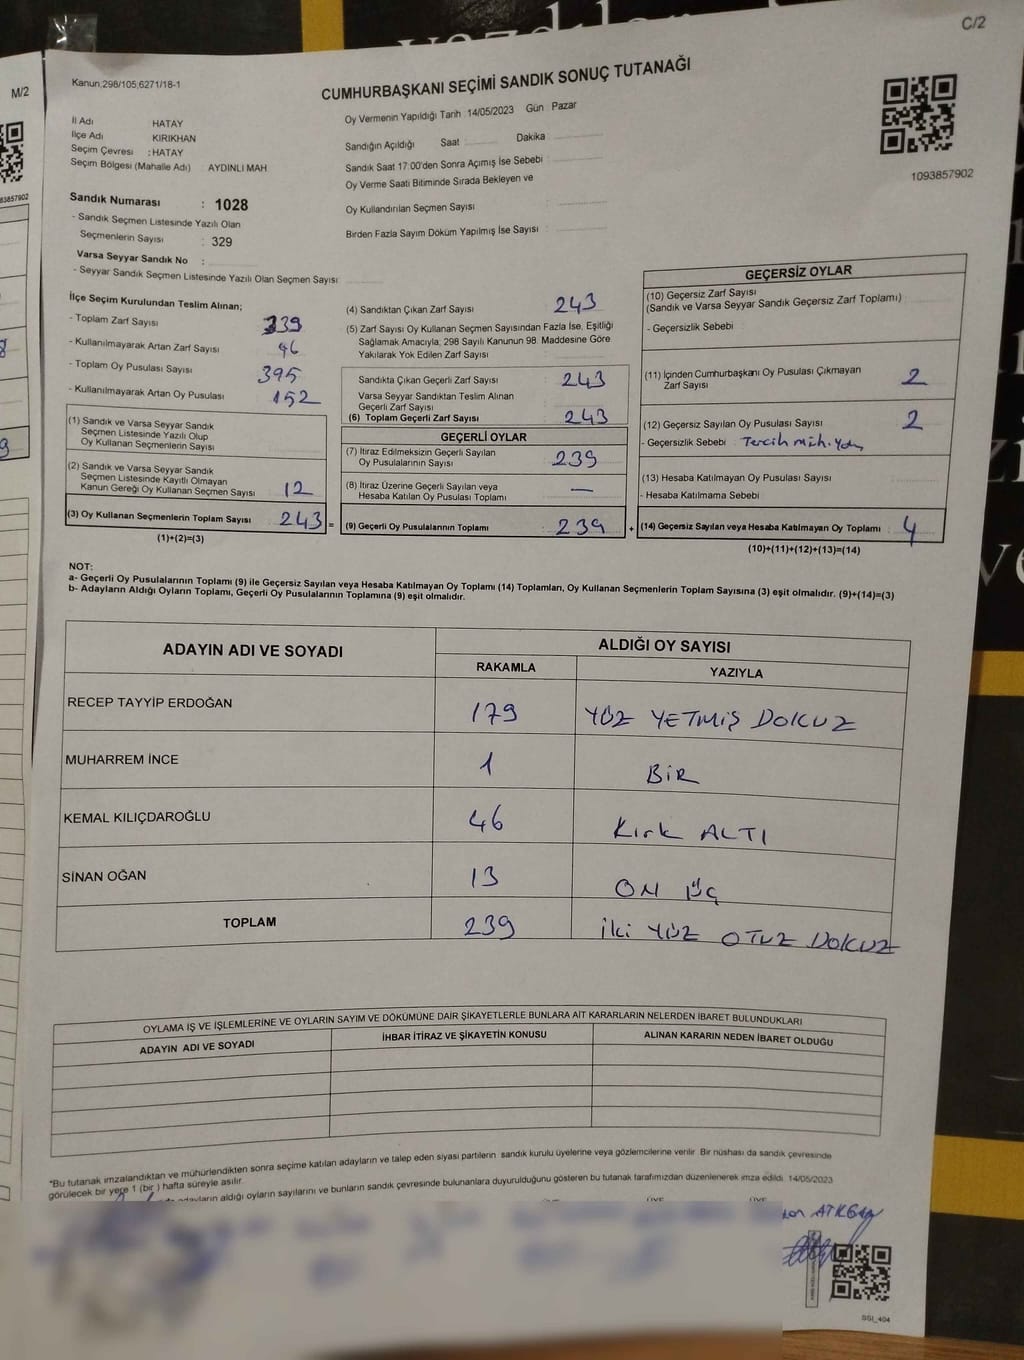 C/2
M/2
Kanun,298/105;6271/18-1
CUMHURBAŞKANI SEÇİMİ SANDIK SONUÇ TUTANAĞI
İl Adı HATAY
İlçe Adı KIRIKHAN
Seçim Çevresi : HATAY
Seçim Bölgesi (Mahalle Adı) AYDINLI MAH
Oy Vermenin Yapıldığı Tarih 14/05/2023 Gün Pazar
Sandığın Açıldığı Saat Dakika
Sandık Saat 17:00'den Sonra Açımış İse Sebebi :
Oy Verme Saati Bitiminde Sırada Bekleyen ve
Oy Kullandırılan Seçmen Sayısı :
Birden Fazla Sayım Döküm Yapılmış İse Sayısı :
1093857902
93857902
Sandık Numarası : 1028
- Sandık Seçmen Listesinde Yazılı Olan
Seçmenlerin Sayısı : 329
Varsa Seyyar Sandık No :
- Seyyar Sandık Seçmen Listesinde Yazılı Olan Seçmen Sayısı :
İlçe Seçim Kurulundan Teslim Alınan;
- Toplam Zarf Sayısı 339
- Kullanılmayarak Artan Zarf Sayısı 96
- Toplam Oy Pusulası Sayısı 395
- Kullanılmayarak Artan Oy Pusulası 152
(1) Sandık ve Varsa Seyyar Sandık
Seçmen Listesinde Yazılı Olup
Oy Kullanan Seçmenlerin Sayısı :
(2) Sandık ve Varsa Seyyar Sandık
Seçmen Listesinde Kayıtlı Olmayan
Kanun Gereği Oy Kullanan Seçmen Sayısı : 12
(3) Oy Kullanan Seçmenlerin Toplam Sayısı : 243 =
(1)+(2)=(3)
(4) Sandıktan Çıkan Zarf Sayısı : 243
(5) Zarf Sayısı Oy Kullanan Seçmen Sayısından Fazla İse, Eşitliği
Sağlamak Amacıyla; 298 Sayılı Kanunun 98. Maddesine Göre
Yakılarak Yok Edilen Zarf Sayısı :
Sandıkta Çıkan Geçerli Zarf Sayısı : 243
Varsa Seyyar Sandıktan Teslim Alınan
Geçerli Zarf Sayısı :
(6) Toplam Geçerli Zarf Sayısı : 243
GEÇERLİ OYLAR
(7) İtiraz Edilmeksizin Geçerli Sayılan
Oy Pusulalarının Sayısı : 239
(8) İtiraz Üzerine Geçerli Sayılan veya
Hesaba Katılan Oy Pusulası Toplamı : —
(9) Geçerli Oy Pusulalarının Toplamı : 239 +
GEÇERSİZ OYLAR
(10) Geçersiz Zarf Sayısı
(Sandık ve Varsa Seyyar Sandık Geçersiz Zarf Toplamı) :
- Geçersizlik Sebebi :
(11) İçinden Cumhurbaşkanı Oy Pusulası Çıkmayan
Zarf Sayısı : 2
(12) Geçersiz Sayılan Oy Pusulası Sayısı : 2
- Geçersizlik Sebebi : Tercih Müh. Yok
(13) Hesaba Katılmayan Oy Pusulası Sayısı :
- Hesaba Katılmama Sebebi :
(14) Geçersiz Sayılan veya Hesaba Katılmayan Oy Toplamı : 4
(10)+(11)+(12)+(13)=(14)
NOT:
a- Geçerli Oy Pusulalarının Toplamı (9) ile Geçersiz Sayılan veya Hesaba Katılmayan Oy Toplamı (14) Toplamları, Oy Kullanan Seçmenlerin Toplam Sayısına (3) eşit olmalıdır. (9)+(14)=(3)
b- Adayların Aldığı Oyların Toplamı, Geçerli Oy Pusulalarının Toplamına (9) eşit olmalıdır.
ADAYIN ADI VE SOYADI ALDIĞI OY SAYISI
RAKAMLA YAZIYLA
RECEP TAYYİP ERDOĞAN 179 YÜZ YETMİŞ DOKUZ
MUHARREM İNCE 1 BİR
KEMAL KILIÇDAROĞLU 46 Kırk ALTI
SİNAN OĞAN 13 ON ÜÇ
TOPLAM 239 İki YÜZ OTUZ DOKUZ
OYLAMA İŞ VE İŞLEMLERİNE VE OYLARIN SAYIM VE DÖKÜMÜNE DAİR ŞİKAYETLERLE BUNLARA AİT KARARLARIN NELERDEN İBARET BULUNDUKLARI
ADAYIN ADI VE SOYADI İHBAR İTİRAZ VE ŞİKAYETİN KONUSU ALINAN KARARIN NEDEN İBARET OLDUĞU
*Bu tutanak imzalandıktan ve mühürlendikten sonra seçime katılan adayların ve talep eden siyasi partilerin sandık kurulu üyelerine veya gözlemcilerine verilir. Bir nüshası da sandık çevresinde
görülecek bir yere 1 (bir) hafta süreyle asılır.
adayların aldığı oyların sayılarını ve bunların sandık çevresinde bulunanlara duyurulduğunu gösteren bu tutanak tarafımızdan düzenlenerek imza edildi. 14/05/2023
ÜYE ÜYE
SSI_404